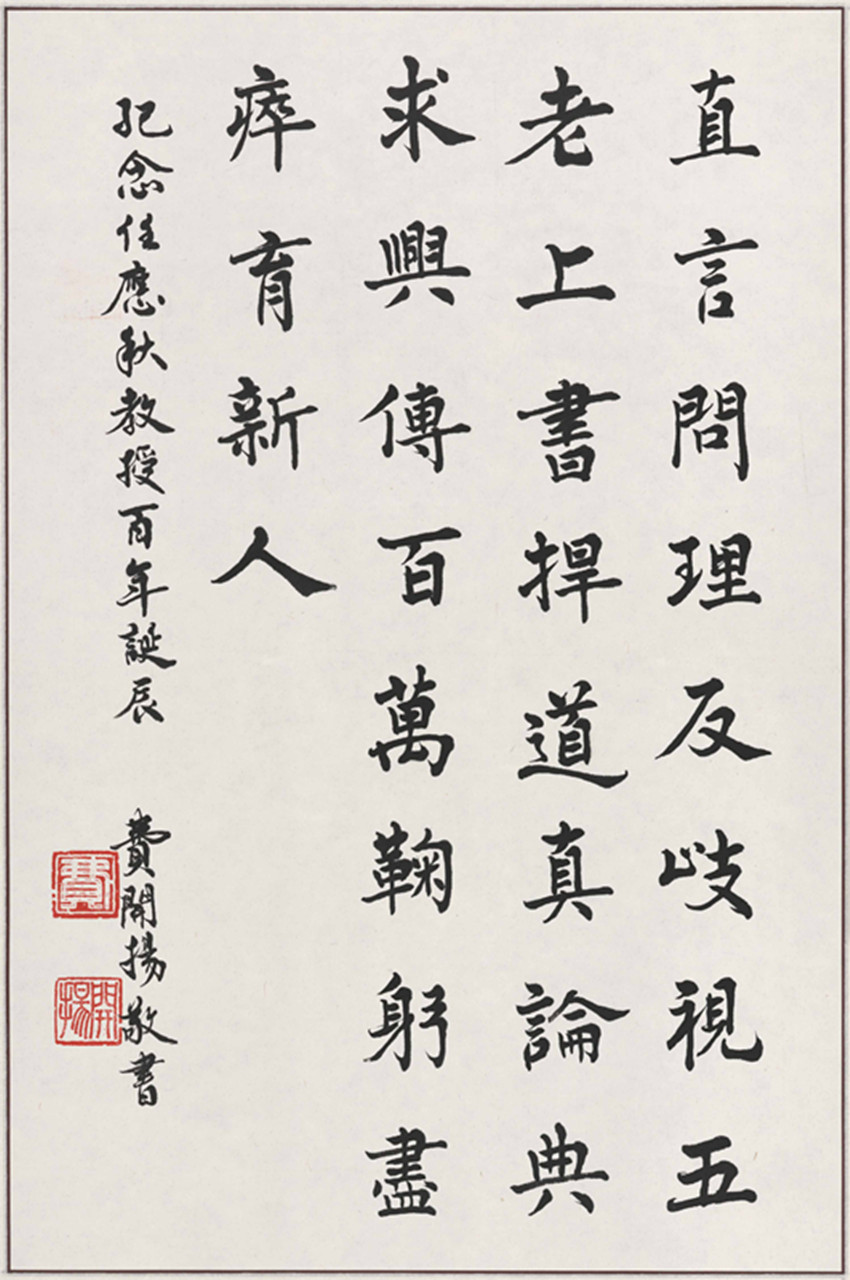 直言問理反歧視五
老上書捍道真論典
求興傳百萬鞠躬盡
瘁育新人
紀念任應秋教授百年誕辰
費開揚敬書
費
開揚